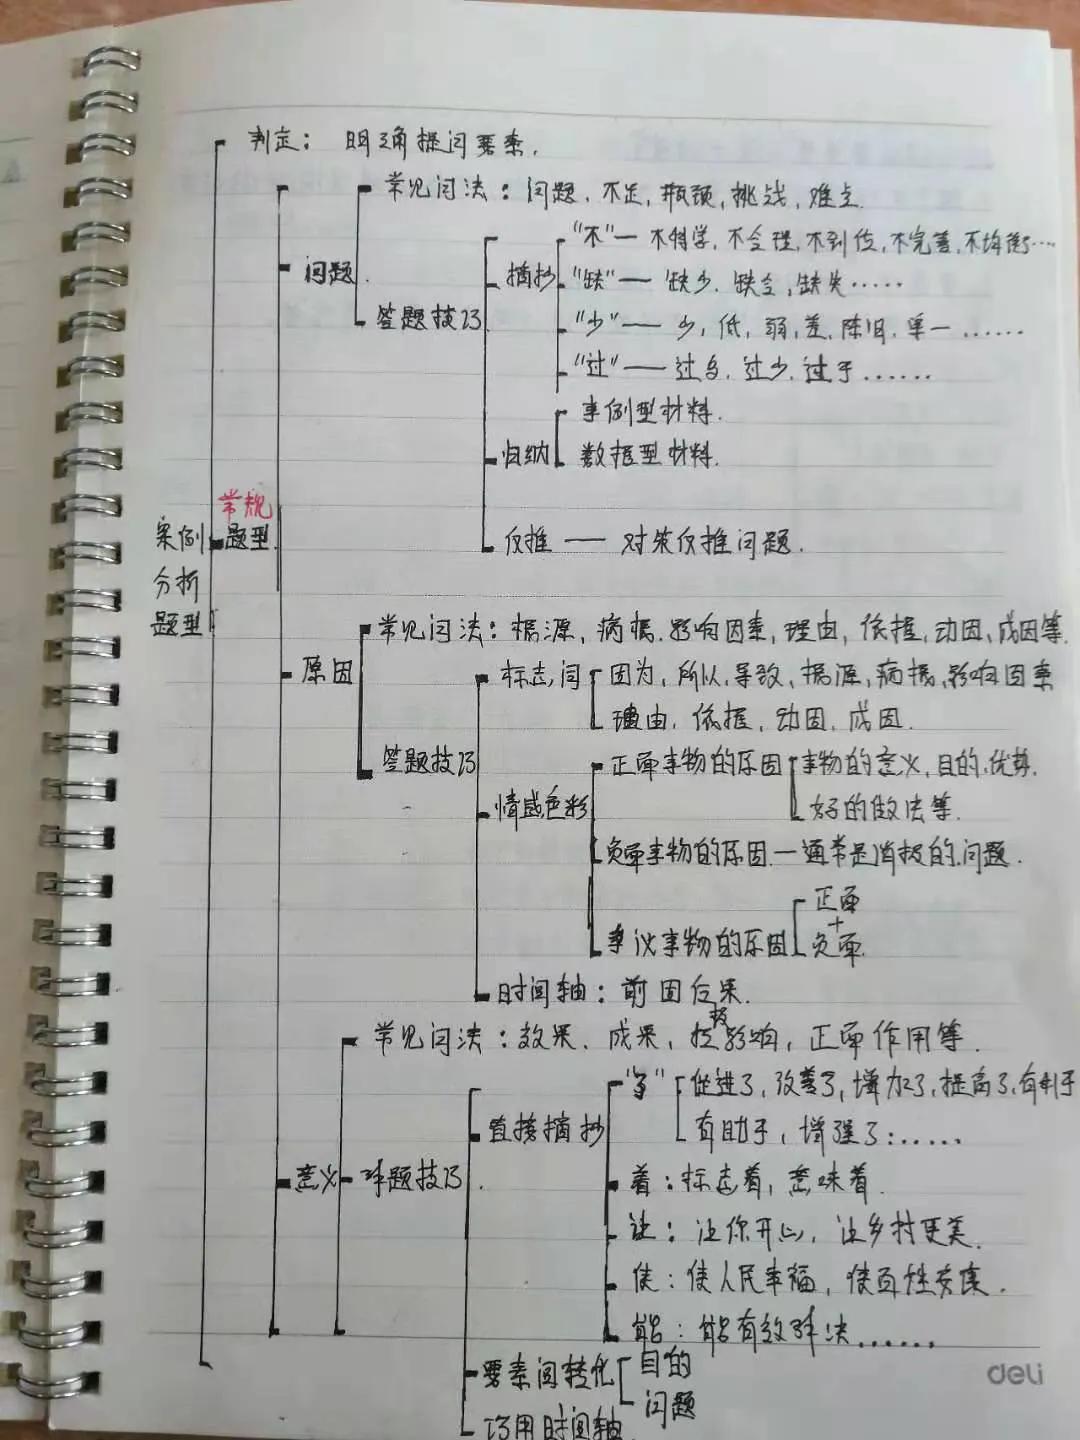 判定：明确提问要素.
常见问法：问题、不足,瓶颈,挑战,难点.
"不"— 不科学,不合理,不到位,不完善,不均衡…
问题.
摘抄
"缺"— 缺少.缺乏,缺失……
答题技巧
"少"— 少,低,弱,差,陈旧.单一……
"过"— 过多.过少.过于……
事例型材料.
归纳
数据型材料.
常规
案例
题型
反推 — 对策反推问题.
分析
题型
常见问法：根源,病根.影响因素,理由,依据,动因,成因等.
原因
标志词
因为,所以,导致,根源,病根,影响因素
理由.依据,动因,成因.
答题技巧
正面事物的原因
事物的意义,目的,优势.
情感色彩
好的做法等.
负面事物的原因—通常是消极的问题.
正面
+
争议事物的原因
负面
时间轴：前因后果.
极
常见问法：效果、成果,影响,正面作用等.
"了"
促进了,改善了,增加了,提高了,有利于
直接摘抄
有助于,增强了……
意义
技巧
着：标志着,意味着.
让：让你开心,让乡村更美.
使：使人民幸福,使百性安康.
能：能有效解决……
要素间转化
目的
问题
巧用时间轴
deli